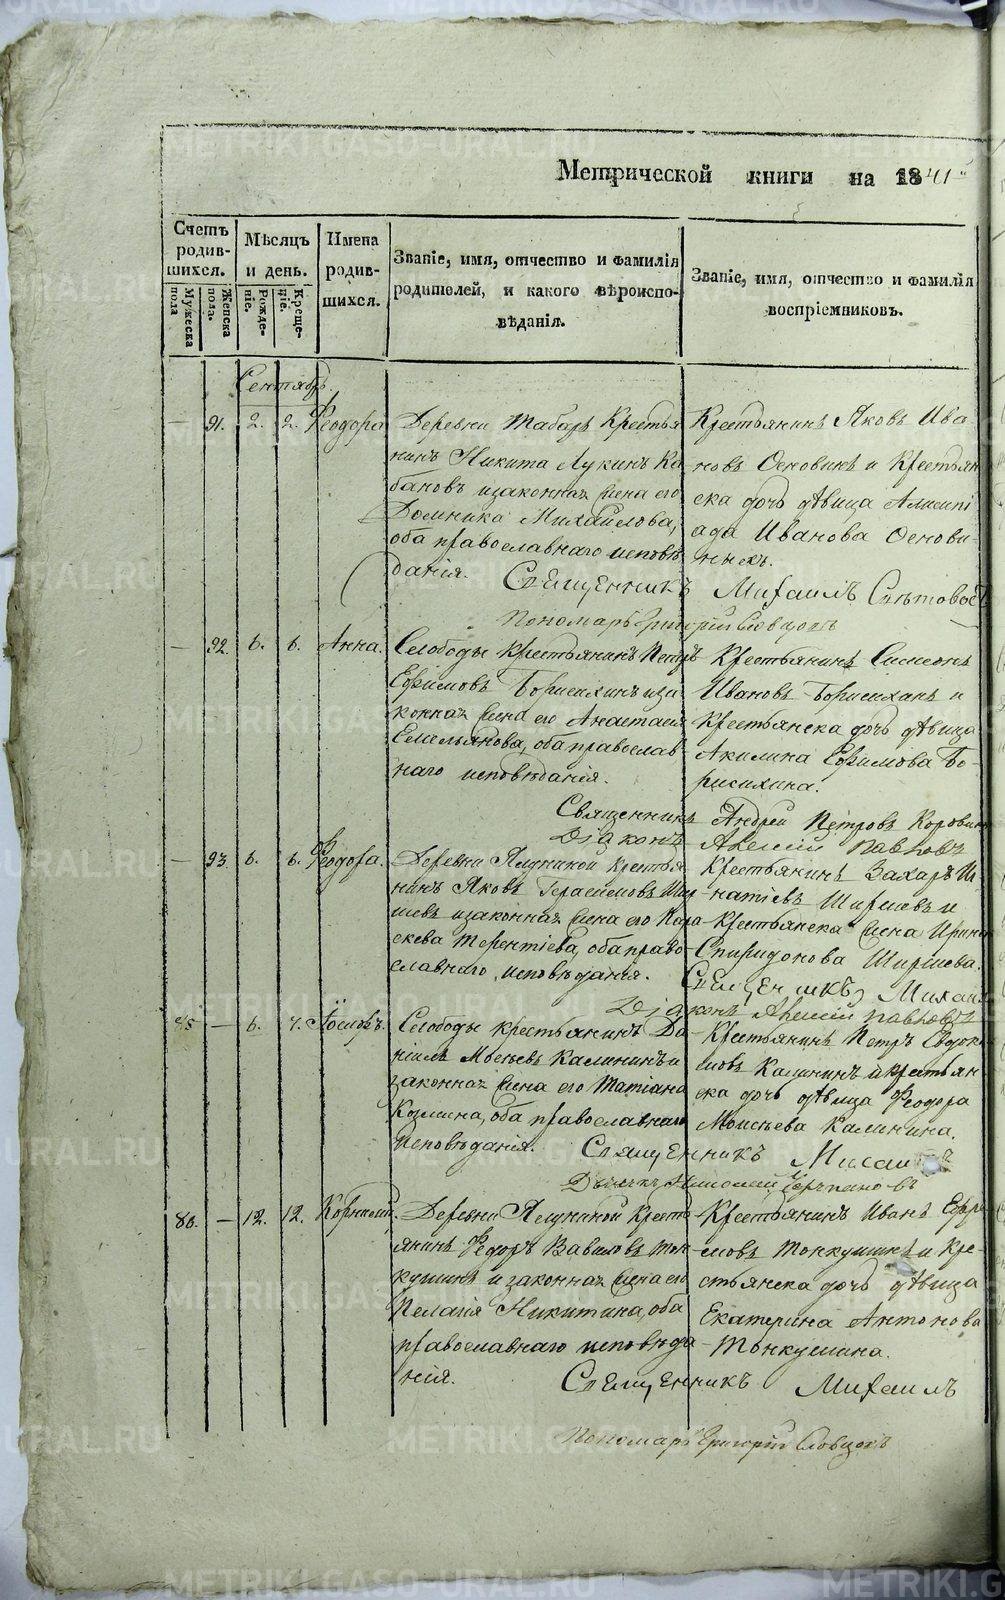 Метрической книги на 1841
Счетъ родившихся.
Мужеска пола
Женска пола.
Мѣсяцъ и день.
Рожденіе.
Крещеніе.
Имена родившихся.
Званіе, имя, отчество и фамилія
родителей, и какого вѣроиспо-
вѣданія.
Званіе, имя, отчество и фамилія
воспріемниковъ.
Сентябрь.
— 91. 2. 2. Ѳеодора
Деревни Табаръ Крестья
нинъ Никита Лукинъ Ка
бановъ и законная жена его
Домника Михайлова,
оба православнаго исповѣ
данія.
Крестьянинъ Яковъ Ива
новъ Основинъ и Крестьян
ска дочь дѣвица Алимпі
ада Иванова Основи-
ныхъ.
Священникъ Михаилъ
Пономарь Григорій Словцовъ
— 92. 6. 6. Анна.
Слободы Крестьянинъ Петръ
Ефимовъ Борисихинъ и за
конная жена его Анастасия
Емельянова, оба православ
наго исповѣданія.
Крестьянинъ Симеонъ
Ивановъ Борисихинъ и
Крестьянска дочь дѣвица
Акилина Ефимова Бо-
рисихина.
Священникъ Андрей Петровъ Коровинъ
Діаконъ Алексій Павловъ
— 93 6. 6. Ѳеодора.
Деревни Ялуниной Крестья
нинъ Яковъ Герасимовъ Шир
шевъ и законная жена его Пара
скева Терентіева, оба право
славнаго исповѣданія.
Крестьянинъ Захаръ И
натіевъ Ширшевъ и
Крестьянска жена Ирин
Спиридонова Ширшева.
Священникъ Михаил
Діаконъ Алексій Павловъ
85 — 6. 7. Іосифъ.
Слободы крестьянинъ Да
ніилъ Мосеевъ Калининъ и
законная жена его Татіана
Козмина, оба православнаго
исповѣданія.
Крестьянинъ Петръ Евдоки
мовъ Калининъ и крестьян
ска дочь дѣвица Ѳеодора
Моисѣева Калинина.
Священникъ Михаилъ
Дьячекъ Николай
86. — 12. 12. Корнилий.
Деревни Ялуниной Кресть
янинъ Ѳедоръ Вавиловъ Тон
кушинъ и законная жена его
Пелагія Никитина, оба
православнаго исповѣда
нія.
Крестьянинъ Иванъ Ефи
мовъ Тонкушинъ и Кре-
стьянска дочь дѣвица
Екатерина Антонова
Тонкушина.
Священникъ Михаилъ
Пономарь Григорій Словцовъ
METRIKI.GASO-URAL.RU